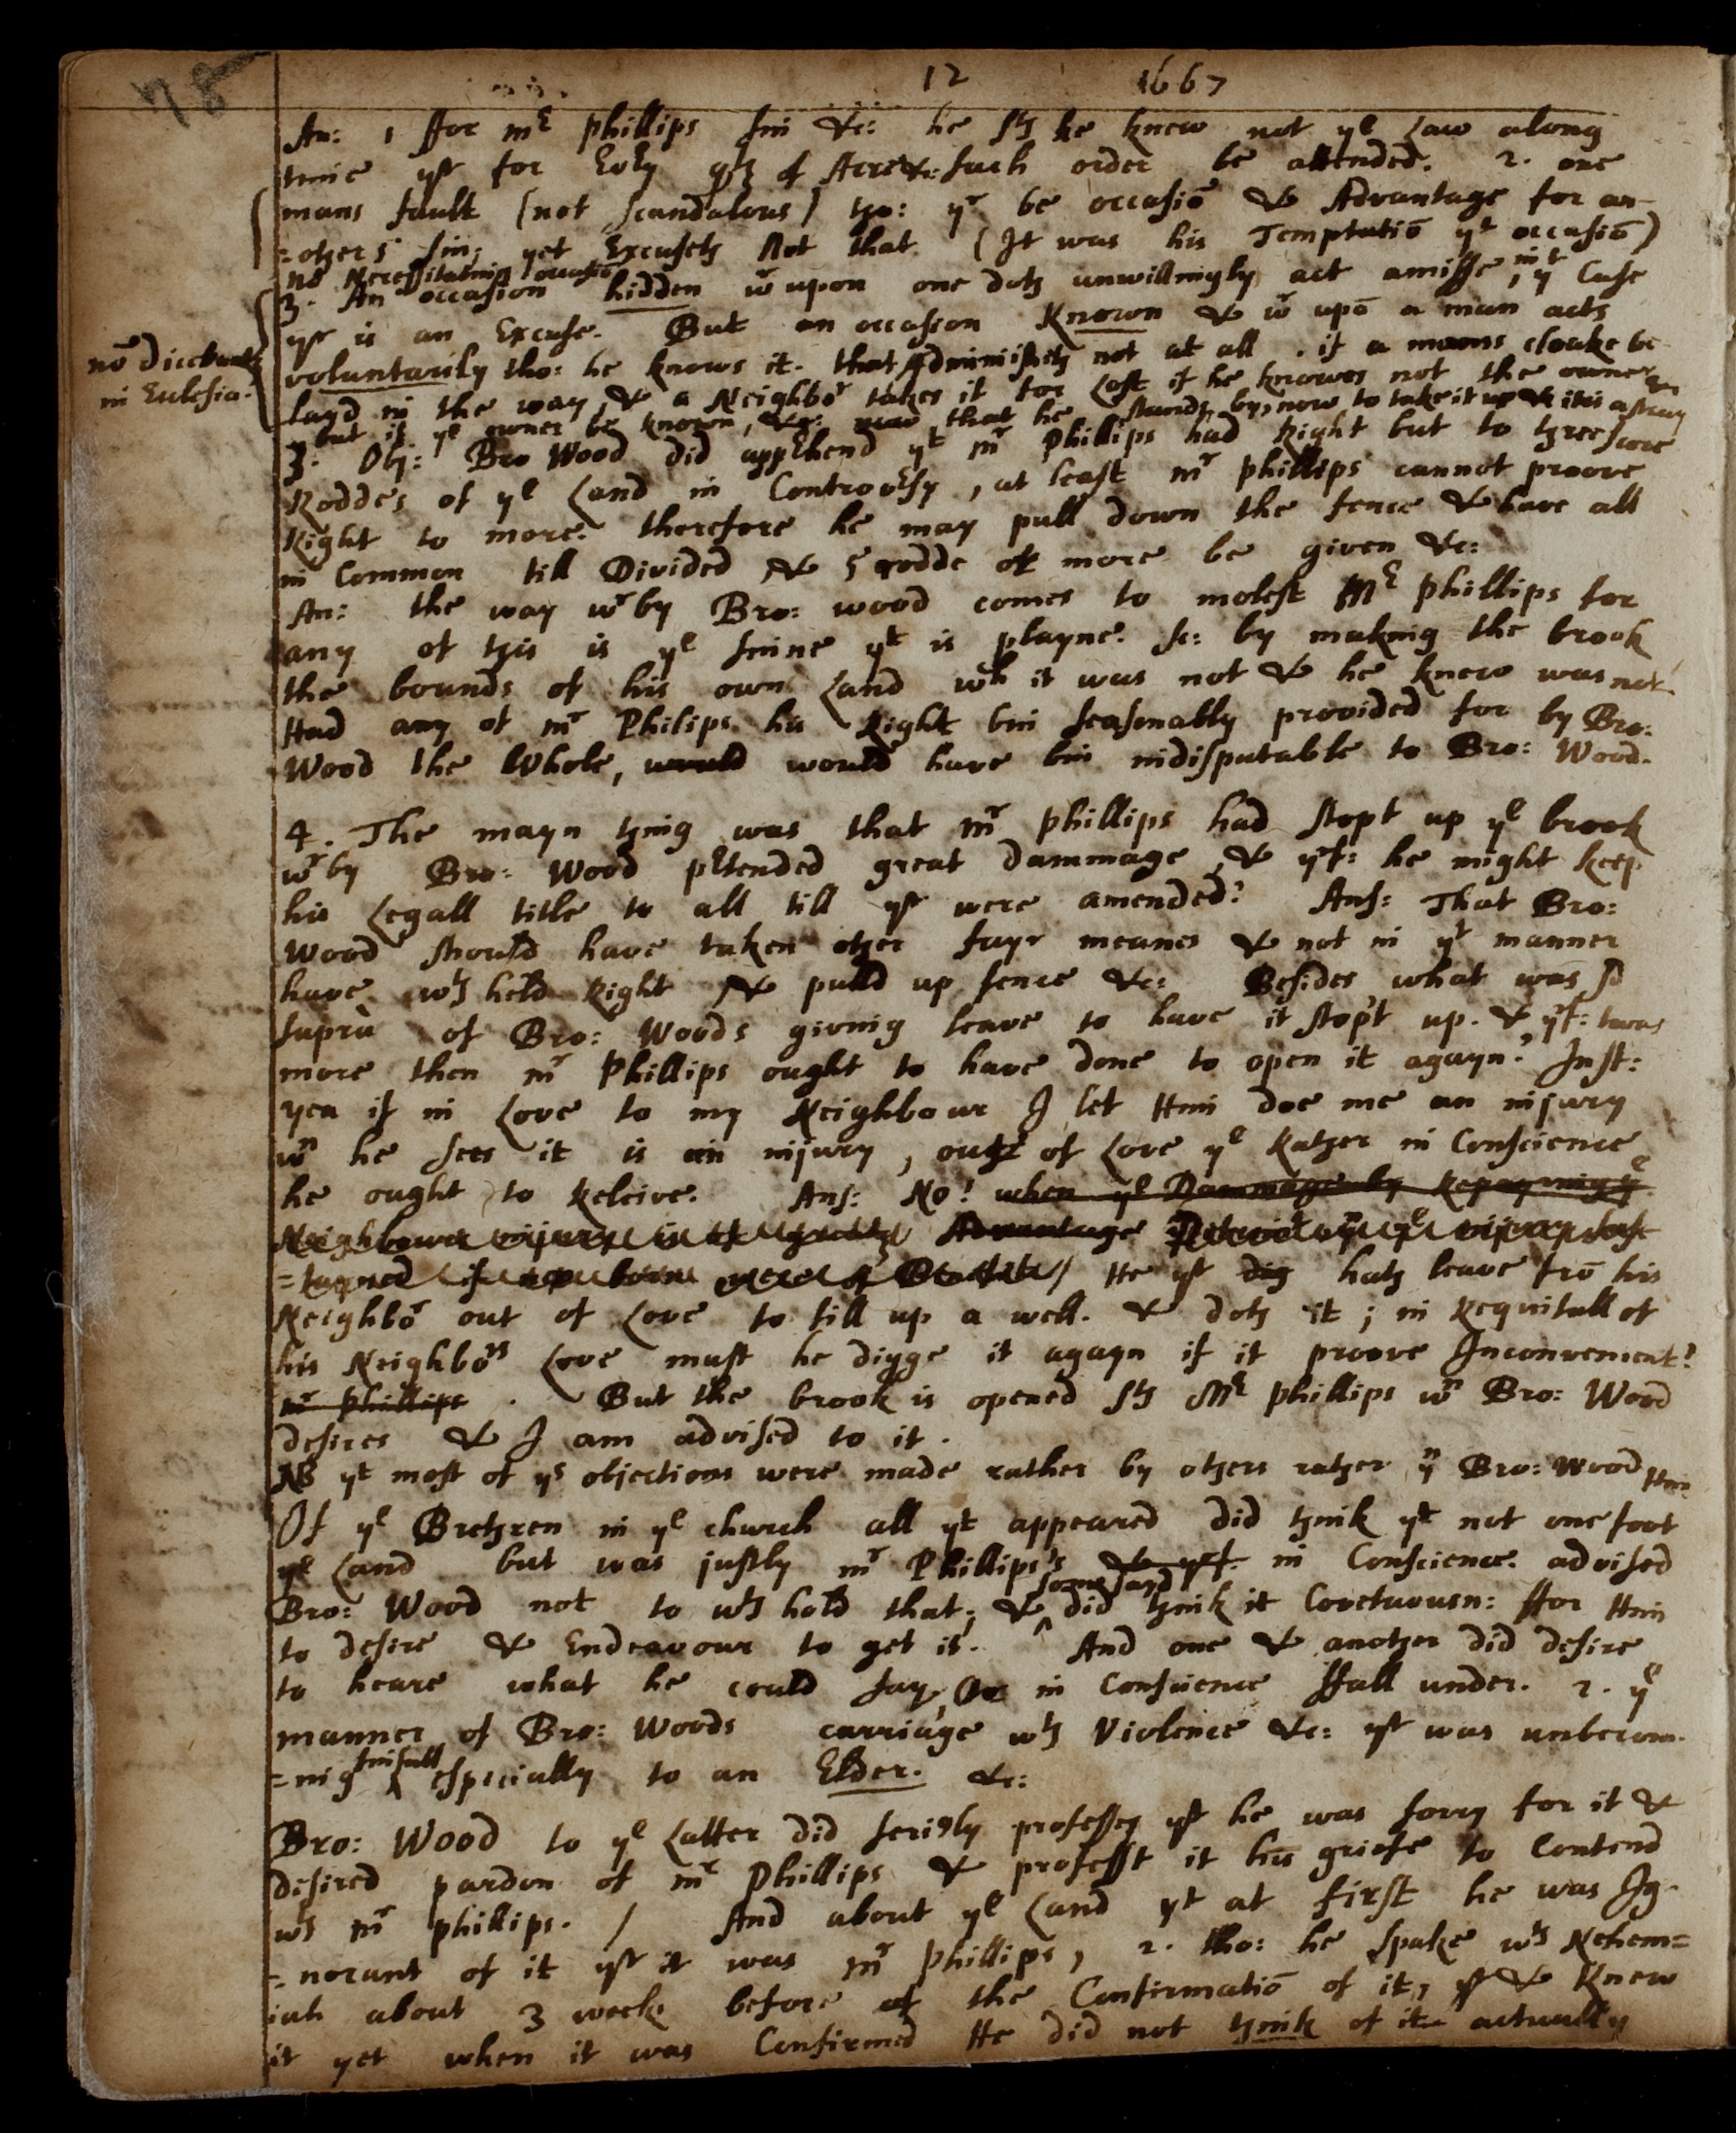 78
12 1667
An: 1 ffor mr Phillips sin &c: he sth he knew not ye Law along
time yt for Evry of Acre &c: such order be attended. 2. one
mans fault (not scandalous) tho: yr be occasiō & Advantage for an-
=others sin; yet Excuseth Not that (It was his Temptatiō yt occasiō)
no Necessitating occasiō
3. An occasion hidden wr upon one doth unwillingly act amisse, in yt Case
yt is an Excuse. But an occasion Known & wr upō a man acts
voluntarily tho: he knows it. that Administreth not at all. if a mans cloake be
nō dicebantr in Eclesia:
layd in the way, & a Neighbor takes it for Lost if he knowes not the owner
but if ye owner be known, &c: that he stands by, now to take it up & it is astray
3. Obj: Bro Wood did apprehend yt mr Phillips had Right but to three score
Rodde's of ye Land in Controversy, at least mr phillips cannot proove
Right to more. therefore he may pull down the fence & have all
in Common till Divided & 5 rodde or more be given &c:
An: the way wrby Bro: wood comes to molest Mr Phillips for
any of this is ye sinne yt is playne. sc: by making the brook
the bounds of his own Land wch it was not & he knew was not.
Had any of mr Philips his Right bin seasonably provided for by Bro:
Wood the Whole, would would have bin indisputable to Bro: Wood.
4. The mayn thing was that mr phillips had stopt up ye brook
wrby Bro: Wood pretended great dammage & yrf: he might keep
his Legall title to all till yt were amended? Ans: That Bro:
Wood should have taken other fayr meanes & not in yt manner
have wth held Right & pulld up fence &c: Besides what was sd
suprà of Bro: Woods giving leave to have it stop't up. & yrf: twas
more then mr Phillips ought to have done to open it agayn? Inst:
yea if in Love to my Neighbour I let Him doe me an injury
wn he sees it is an injury, out of Love ye Rather in Conscience
he ought to Releive. Ans: No! when ye Dammage by Repayring ye
Neighbours injury is Advantage ye injury sust
=tayned / He yt dig hath leave frō his
Neighbor out of Love to fill up a well. & doth it; in Requitall of
his Neighbors Love must he digge it agayn if it proove Inconvenient?
mr phillips. But the brook is opened sth Mr phillips wn Bro: Wood
desires & I am advised to it.
NB yt most of ys objections were made rather by others rather yn Bro: Wood Him
Of ye Brethren in ye church all yt appeared did think yt not one foot
ye Land but was justly mr Phillips's & yrf. in Conscience. advised
Bro: Wood not to wth hold that; & some sayd did think it Covetuousn: ffor Him
to desire & Endeavour to get it. And one & another did desire
to heare what he could say, Or in Conscience ffall under. 2. ye
manner of Bro: Woods carriage wth Violence &c: yt was unbecom-
=ing sinfull especially to an Elder. &c:
Bro: Wood to ye Latter did seriosly professe yt he was sorry for it &
desired pardon of mr Phillips & professt it his griefe to Contend
wth mr phillips. / And about ye Land yt at first he was Ig-
=norant of it yt it was mr phillips, 2. tho: he spake wth Nehem=
iah about 3 week before at the Confirmatiō of it, & Knew
it yet when it was Confirmed He did not think of it actually